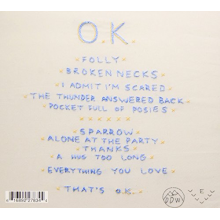 O.K.
FOLLY
BROKEN NECKS
I ADMIT I'M SCARED
THE THUNDER ANSWERED BACK
POCKET FULL OF POSIES
SPARROW
ALONE AT THE PARTY
THANKS
A HUG TOO LONG
EVERYTHING YOU LOVE
THAT'S O.K.